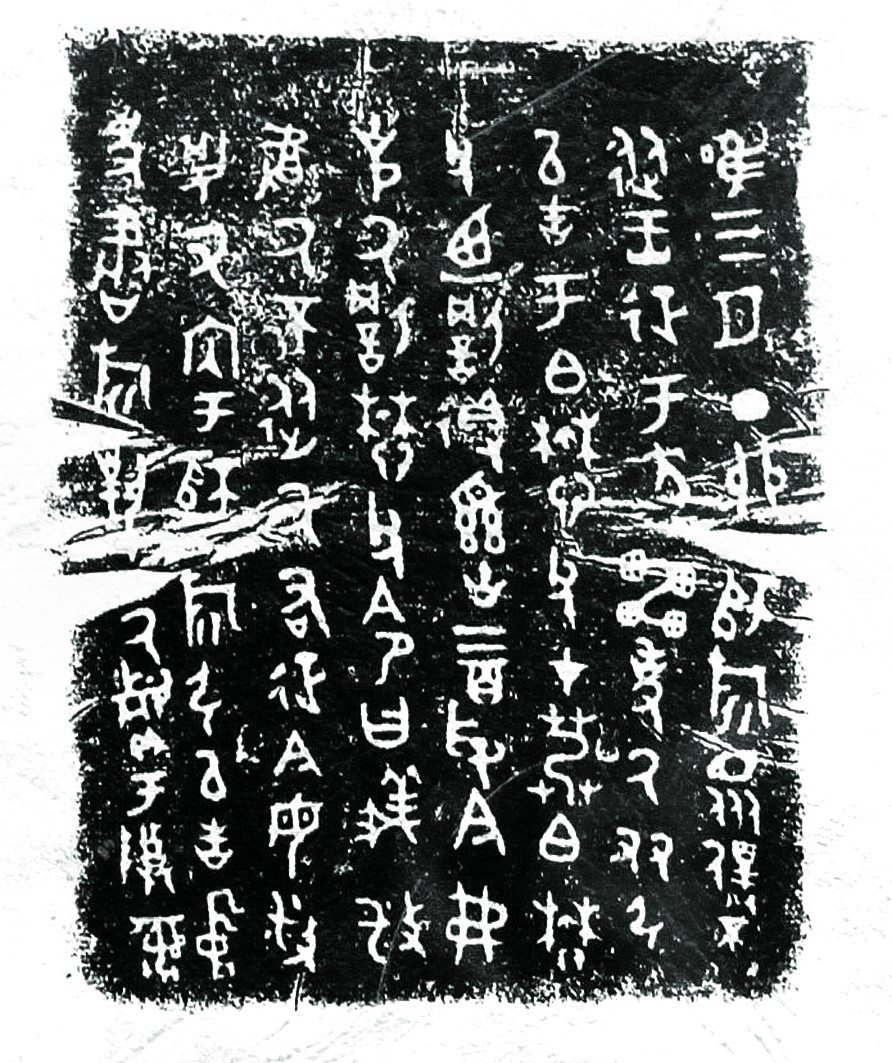 唯三月丁卯師旂眾僕不
從王征于方雷吏厥友弘
以告于白懋父才艿白懋
父廼罰得古三百寽今弗
克厥罰懋父令曰義播
厥不從厥右征今毋播
其又內于師旂弘以告中
史書旂對厥于尊彝